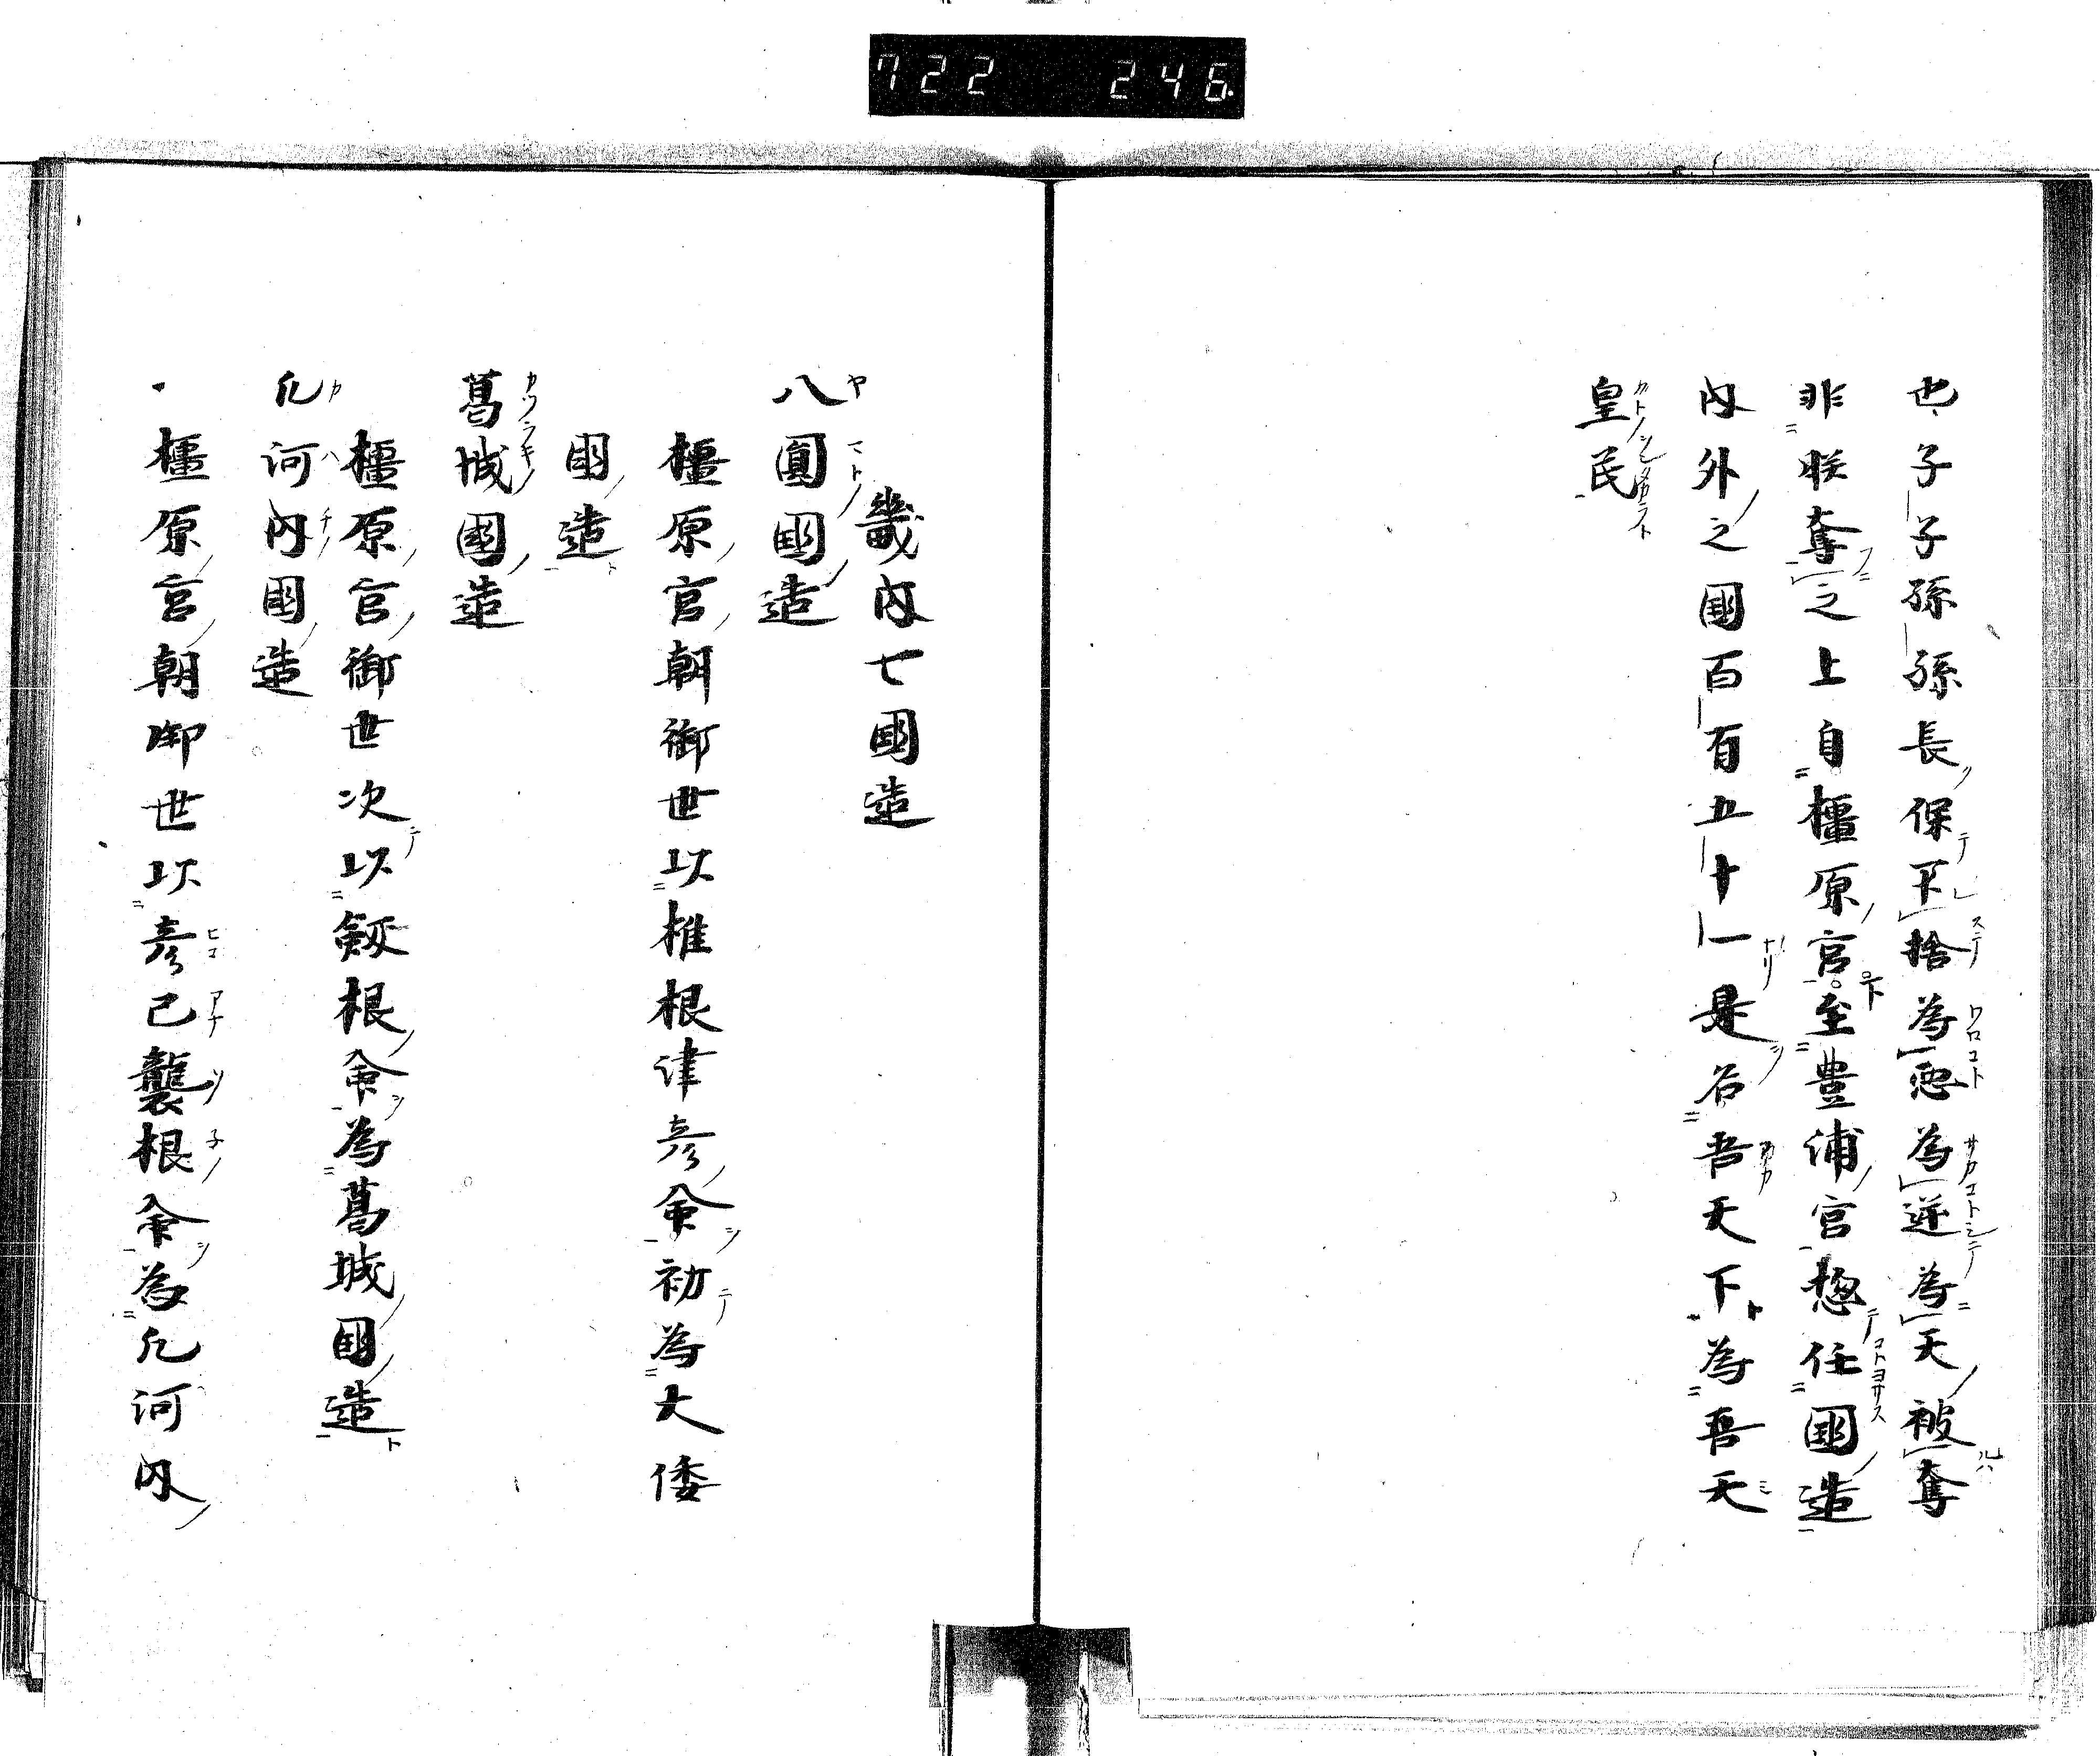 722 246
也子子孫孫長保不捨為惡為逆為天被奪
非朕奪之上自橿原宮至豊浦宮惣任國造
内外之國百百五十一是名吾天下為吾天
皇民
畿内七國造
八圓國造
橿原宮朝御世以椎根津彦命初為大倭
國造
葛城國造
橿原宮御世次以劔根命為葛城國造
凡河内國造
橿原宮朝御世以彦己襲根命為凡河内